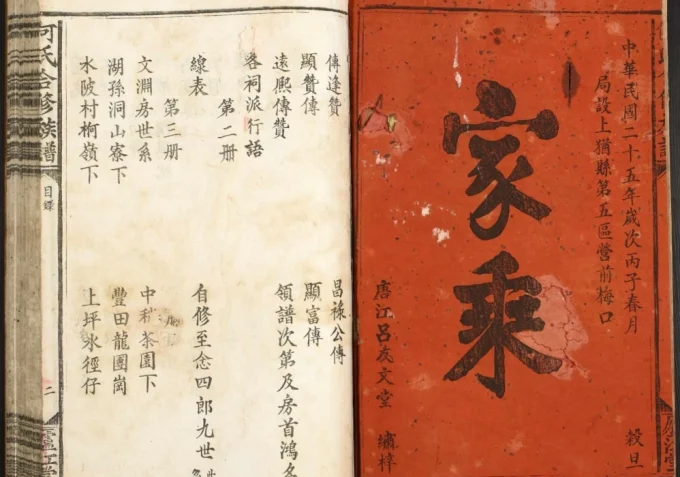 中華民國二十五年歲次丙子春月 穀旦
局設上猶縣第五區營前梅口
家乘
唐江呂友文堂 繡梓
傳逢贊 昌祿公傳
顯贊傳 顯富傳
遠熙傳贊 領譜次第及房首鴻名
各祠派行語
第二册
線表 自修至念四郎九世
第三册
文淵房世系 中秋茶園下
湖孫洞山寮下 豐田龍團崗
水陂村柯嶺下 上坪水徑仔
何氏合修族譜 目錄 二